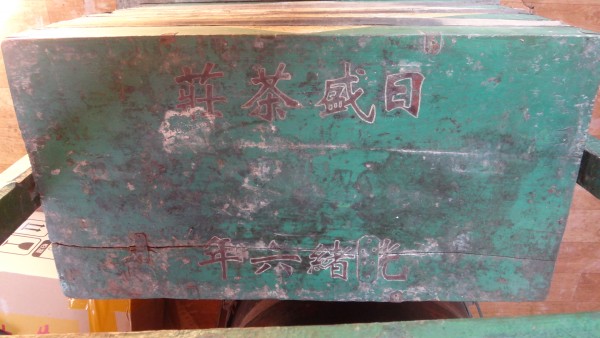 日盛茶莊
光緒六年